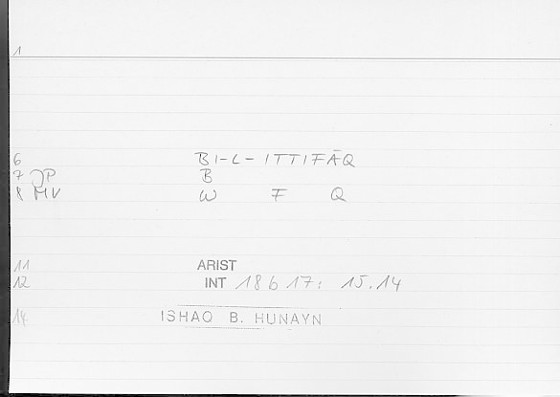 1
6 BI-L-ITTIFĀQ
7 JP B
8 MV W F Q
11 ARIST
12 INT 18 b 17: 15.14
14 ISHAQ B. HUNAYN